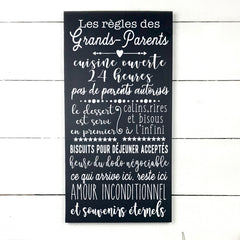 Les règles des
Grands-Parents
cuisine ouverte
24 heures
pas de parents autorisés
le dessert
est servi
en premier
calins, rires
et bisous
à l'infini
BISCUITS POUR DÉJEUNER ACCEPTÉS
heure du dodo négociable
ce qui arrive ici, reste ici
AMOUR INCONDITIONNEL
et souvenirs éternels